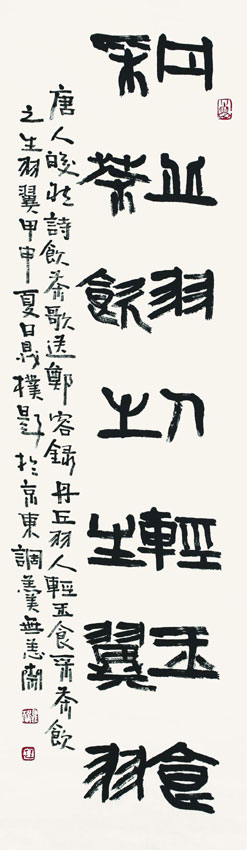 丹丘羽人輕玉食
采茶飲之生翼羽
唐人皎然詩飲茶歌送鄭容錄丹丘羽人輕玉食采茶飲
之生羽翼甲申夏日樸於京東調羹無恙齋